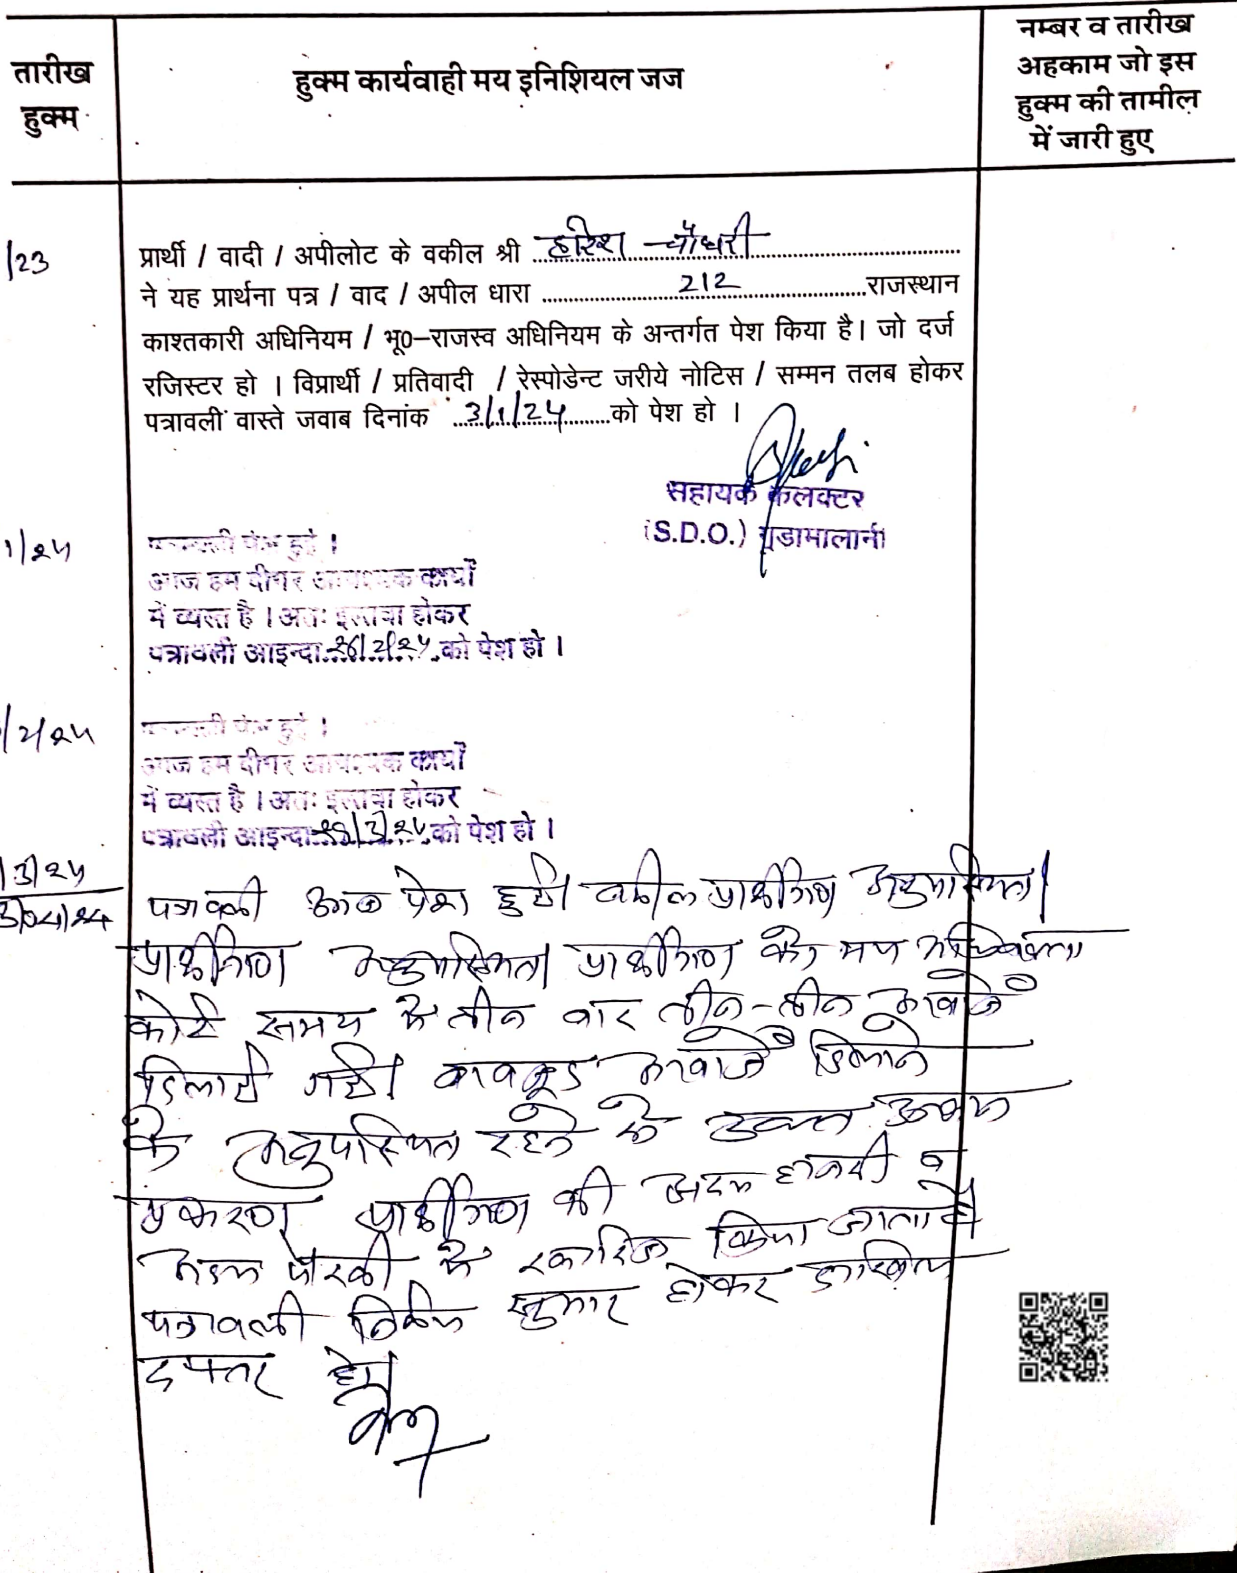 तारीख
हुक्म
हुक्म कार्यवाही मय इनिशियल जज
नम्बर व तारीख
अहकाम जो इस
हुक्म की तामील
में जारी हुए
/23
प्रार्थी / वादी / अपीलोट के वकील श्री हरिश चौधरी
ने यह प्रार्थना पत्र / वाद / अपील धारा 212 राजस्थान
काश्तकारी अधिनियम / भू0-राजस्व अधिनियम के अन्तर्गत पेश किया है। जो दर्ज
रजिस्टर हो । विप्रार्थी / प्रतिवादी / रेस्पोडेन्ट जरीये नोटिस / सम्मन तलब होकर
पत्रावली वास्ते जवाब दिनांक 3/1/24 को पेश हो ।
सहायक कलक्टर
(S.D.O.) गुडामालानी
1/24
पत्रावली पेश हुई ।
आज हम दीगर आवश्यक कार्यो
में व्यस्त है । अतः इल्तवा होकर
पत्रावली आइन्दा 26/2/24 को पेश हो ।
/2/24
पत्रावली पेश हुई ।
आज हम दीगर आवश्यक कार्यो
में व्यस्त है । अतः इल्तवा होकर
पत्रावली आइन्दा /3/24 को पेश हो ।
/3/24
पत्रावली आज पेश हुई। वकील प्रार्थीगण अनुपस्थित।
प्रार्थीगण अनुपस्थित। प्रार्थीगण को मय अधिवक्ता
कोर्ट समय में तीन बार तीन-तीन आवाजे
दिलाई गई। बावजूद आवाजे दिलाने
के अनुपस्थित रहने से उक्त
प्रकरण प्रार्थीगण की अदम हाजरी व
अदम पैरवी में खारिज किया जाता है
पत्रावली फैसल शुमार होकर दाखिल
दफ्तर हो।